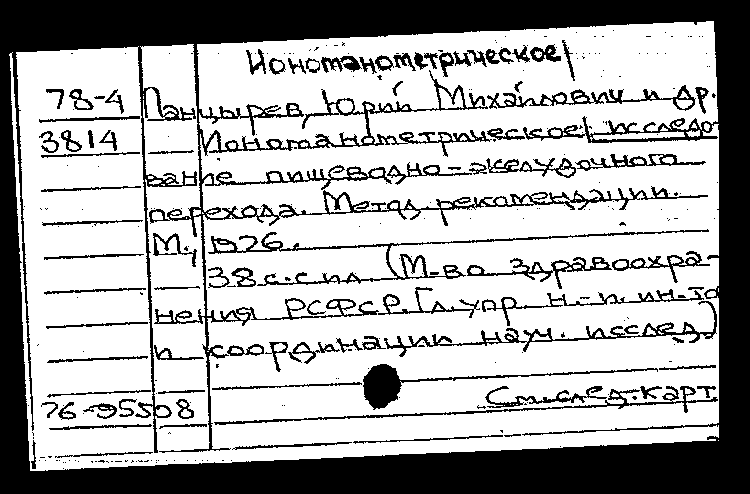 Иономанометрическое|
78-4 Панцырев, Юрий Михайлович и др.
3814 Иономанометрическое| исследо-
вание пищеводно-желудочного
перехода. Метод. рекомендации.
М., 1976.
38 с. с ил. (М-во здравоохра-
нения РСФСР. Гл. упр. н.-и. ин-то
и координации науч. исслед.)
76-95508 См. след. карт